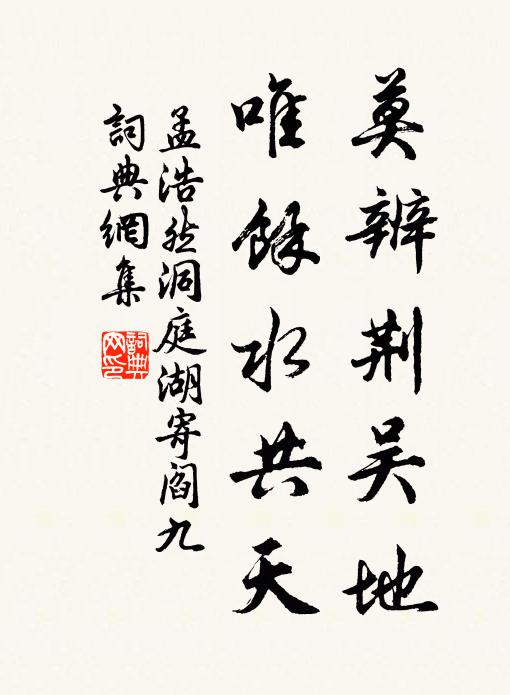 莫辨荆吴地
唯餘水共天
孟浩然洞庭湖寄阎九
詞典網集
詞典
网印